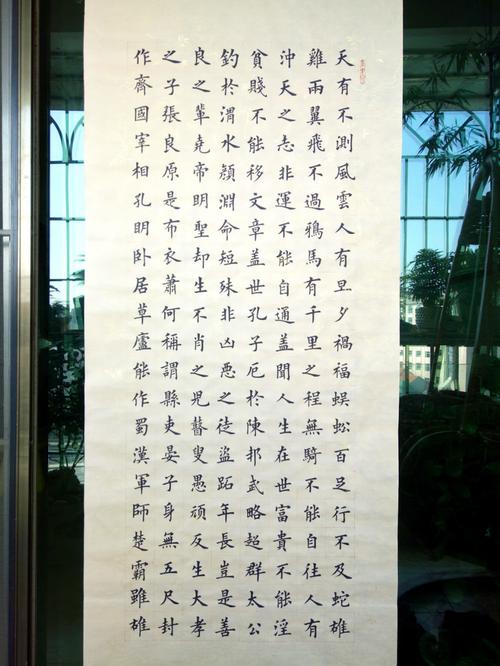 天有不測風雲人有旦夕禍福蜈蚣百足行不及蛇雄
雞兩翼飛不過鴉馬有千里之程無騎不能自往人有
沖天之志非運不能自通蓋聞人生在世富貴不能淫
貧賤不能移文章蓋世孔子厄於陳邦武略超群太公
釣於渭水顏淵命短殊非凶惡之徒盜跖年長豈是善
良之輩堯帝明聖却生不肖之兒瞽叟愚頑反生大孝
之子張良原是布衣蕭何稱謂縣吏晏子身無五尺封
作齊國宰相孔明卧居草廬能作蜀漢軍師楚霸雖雄